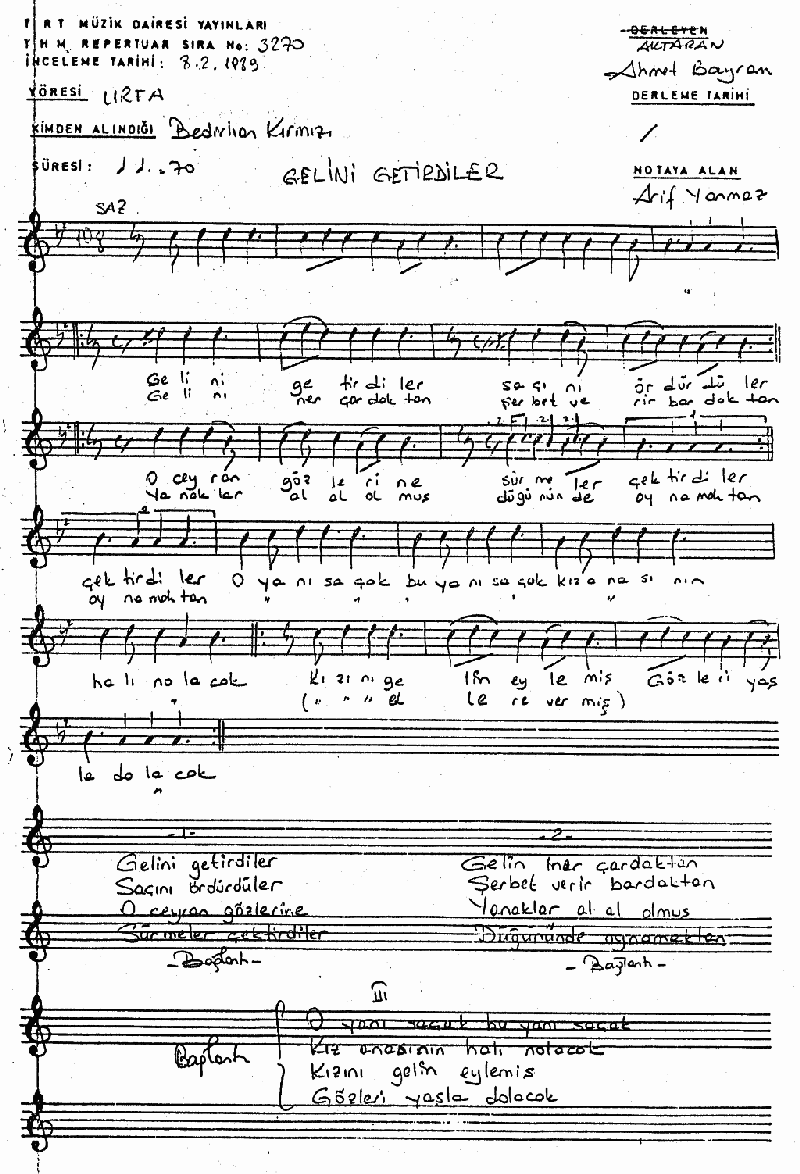 T R T MÜZİK DAİRESİ YAYINLARI
T H M REPERTUAR SIRA No: 3270
İNCELEME TARİHİ: 8.2.1989
DERLEYEN
AKTARAN
Ahmet Bayram
YÖRESİ URFA
DERLEME TARİHİ
KİMDEN ALINDIĞI Bedirhan Kırmızı
/
SÜRESİ: 70
GELİNİ GETİRDİLER
NOTAYA ALAN
Arif Yanmaz
SAZ
10/8
Ge li ni ge tir di ler sa çı nı ör dür dü ler
Ge li nı ner çar dak tan şer bet ve rir bar dak tan
O cey ran göz le ri ne sür me ler çek tir di ler
Ya nak lar al al ol muş düğü nün de oy na mak tan
çek tir di ler O ya nı sa çak bu ya nı sa çak kız a na sı nın
oy na mak tan " " " "
ha li no la cak Kı zı nı ge lin ey le miş Göz le ri yaş
(" " " el le re ver miş)
la do la cak
"
-1-
Gelini getirdiler
Saçını ördürdüler
O ceyran gözlerine
Sürmeler çektirdiler
-Bağlantı-
-2-
Gelin iner çardaktan
Şerbet verir bardaktan
Yanaklar al al olmuş
Düğününde oynamaktan
-Bağlantı-
III
Bağlantı
O yanı saçak bu yanı saçak
Kız anasının halı nolacak
Kızını gelin eylemiş
Gözleri yaşla dolacak